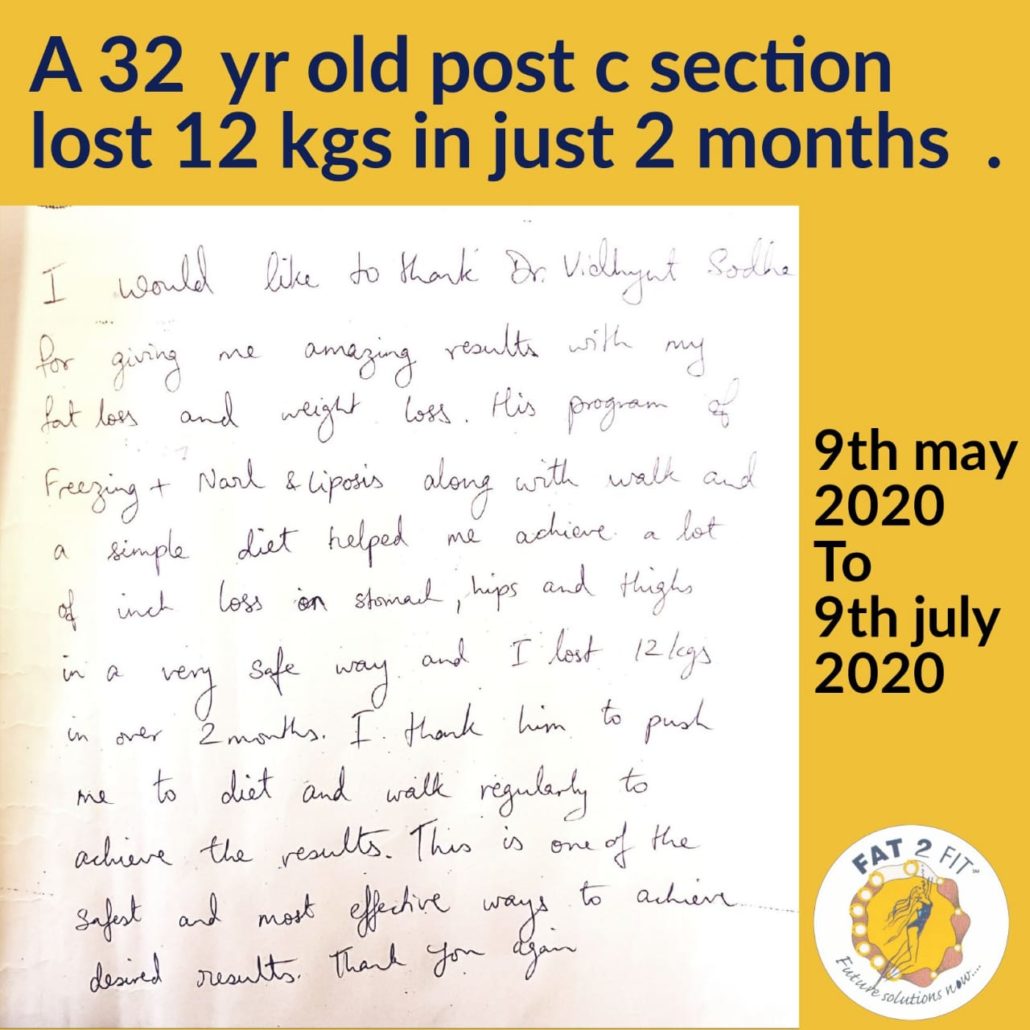 A 32 yr old post c section
lost 12 kgs in just 2 months .
I would like to thank Dr. Vidhyut Sodha
for giving me amazing results with my
fat loss and weight loss. His program of
Freezing + Narl & Liposis along with walk and
a simple diet helped me achieve a lot
of inch loss on stomach, hips and thighs
in a very safe way and I lost 12 kgs
in over 2 months. I thank him to push
me to diet and walk regularly to
achieve the results. This is one of the
safest and most effective ways to achieve
desired results. Thank you again
9th may
2020
To
9th july
2020
FAT 2 FIT
Future solutions now....